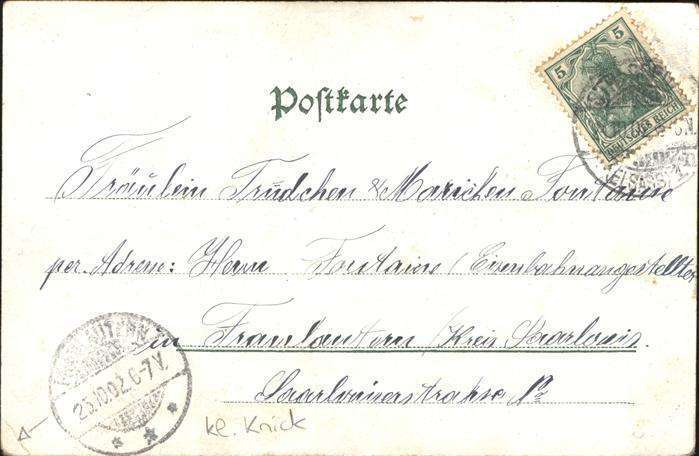 Postkarte
5 5
DEUTSCHES REICH
Fräulein Trudchen & Mariechen Fontaine
per. Adresse: Herrn Fontaine / Eisenbahnangestellter
in Fraulautern / Kreis Saarlouis.
Saarlouiserstrasse No
25.10.02.6-7V.
kl. Knick